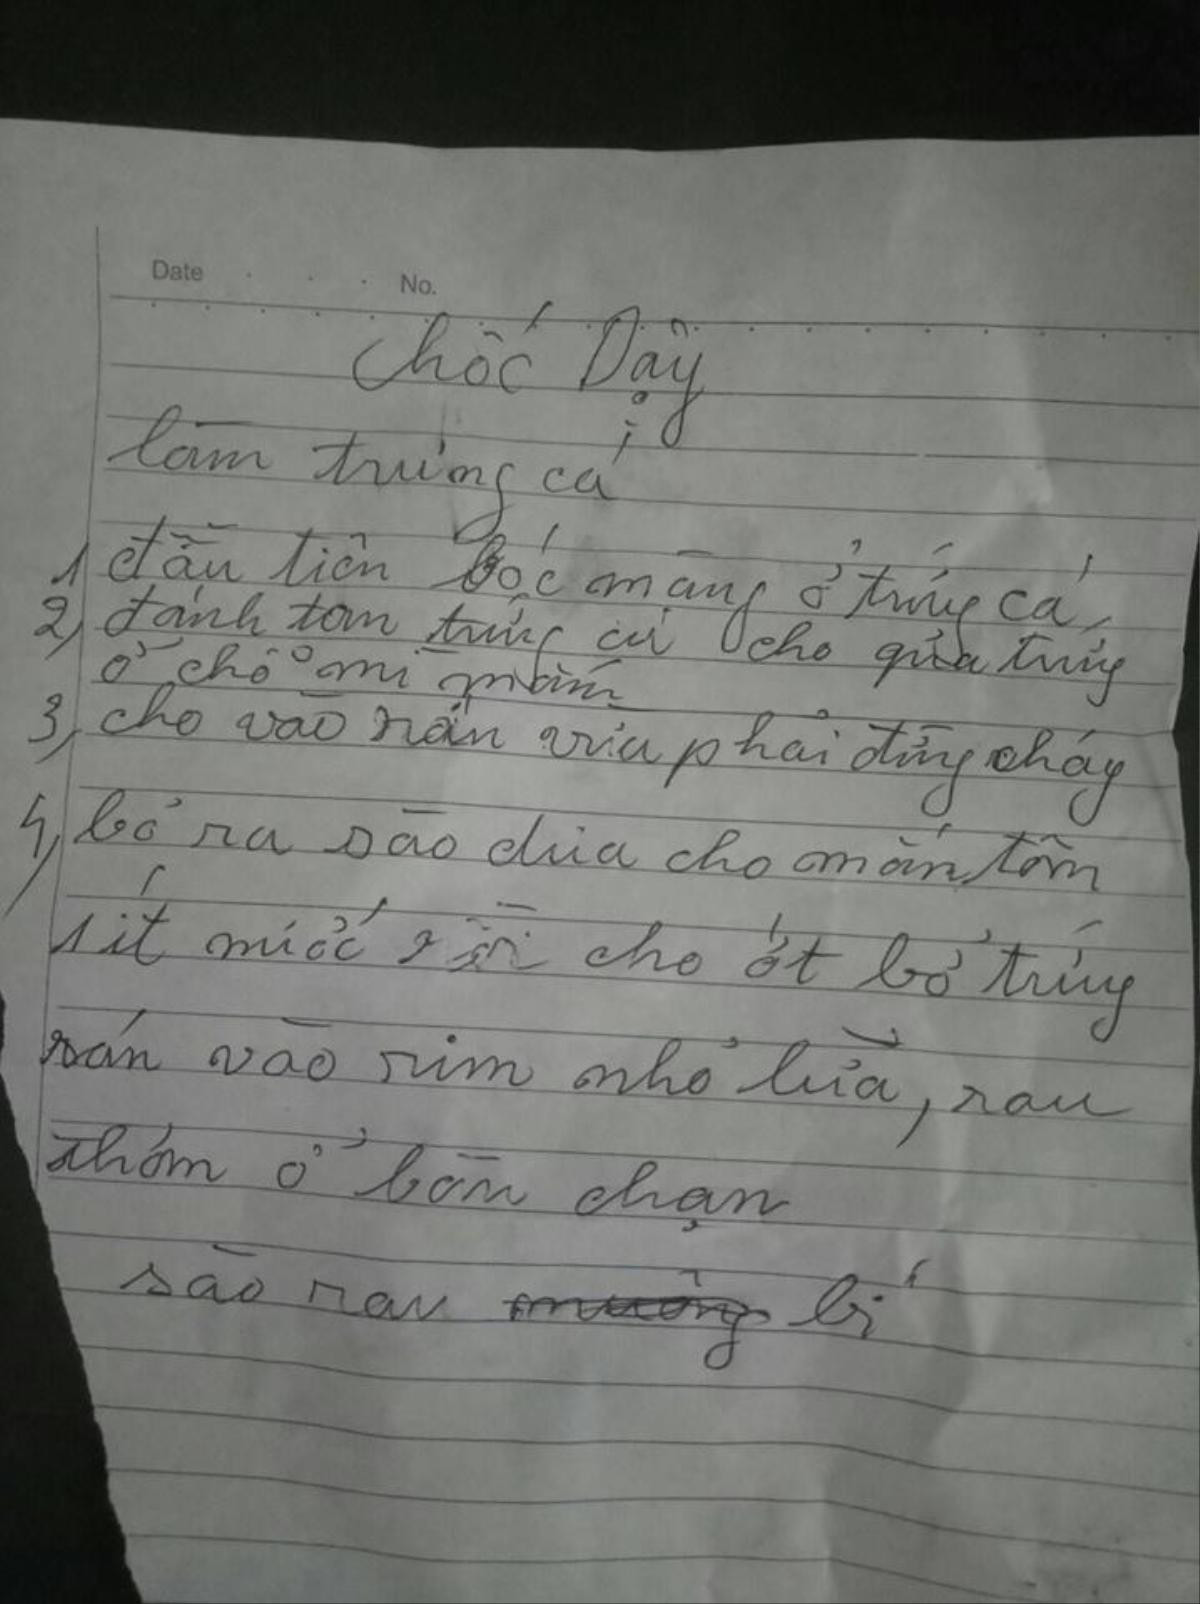 Date No.
chốc Dậy
làm trứng cá
1 đầu tiên bóc màng ở trứng cá,
2, đánh tan trứng cá cho quả trứng
ở chỗ mì mắm
3, cho vào rán vừa phải đừng cháy
4, bỏ ra sào dứa cho mắn, tôm
sít mước rồi cho ớt bỏ trứng
rán vào rim nhỏ lửa, rau
thơm ở bàn chạn
sào rau muống bí